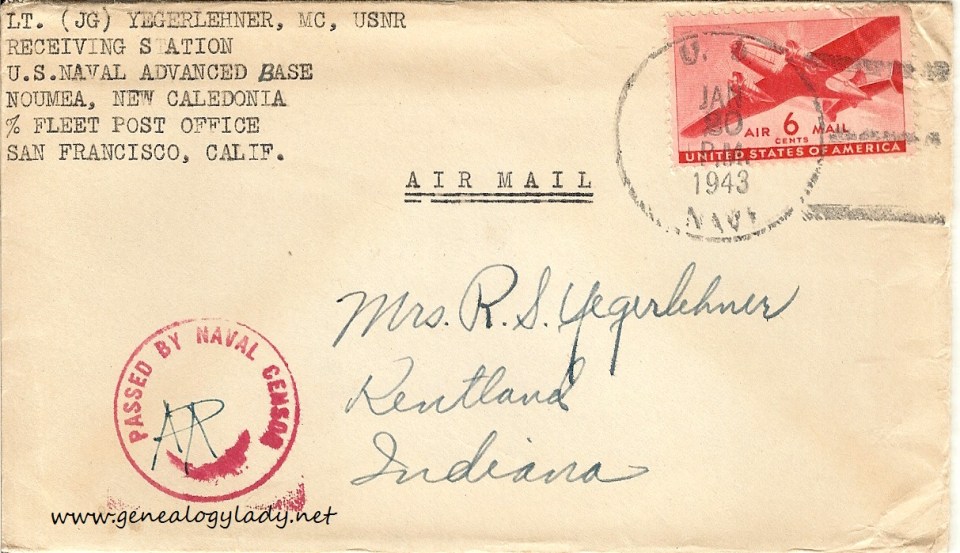 LT. (JG) YEGERLEHNER, MC, USNR
RECEIVING STATION
U.S.NAVAL ADVANCED BASE
NOUMEA, NEW CALEDONIA
% FLEET POST OFFICE
SAN FRANCISCO, CALIF.
AIR MAIL
U. S.
JAN
30
P.M.
1943
NAVY
AIR 6 MAIL
CENTS
UNITED STATES OF AMERICA
Mrs. R. S. Yegerlehner
Kentland
Indiana
PASSED BY NAVAL CENSOR
AR
www.genealogylady.net